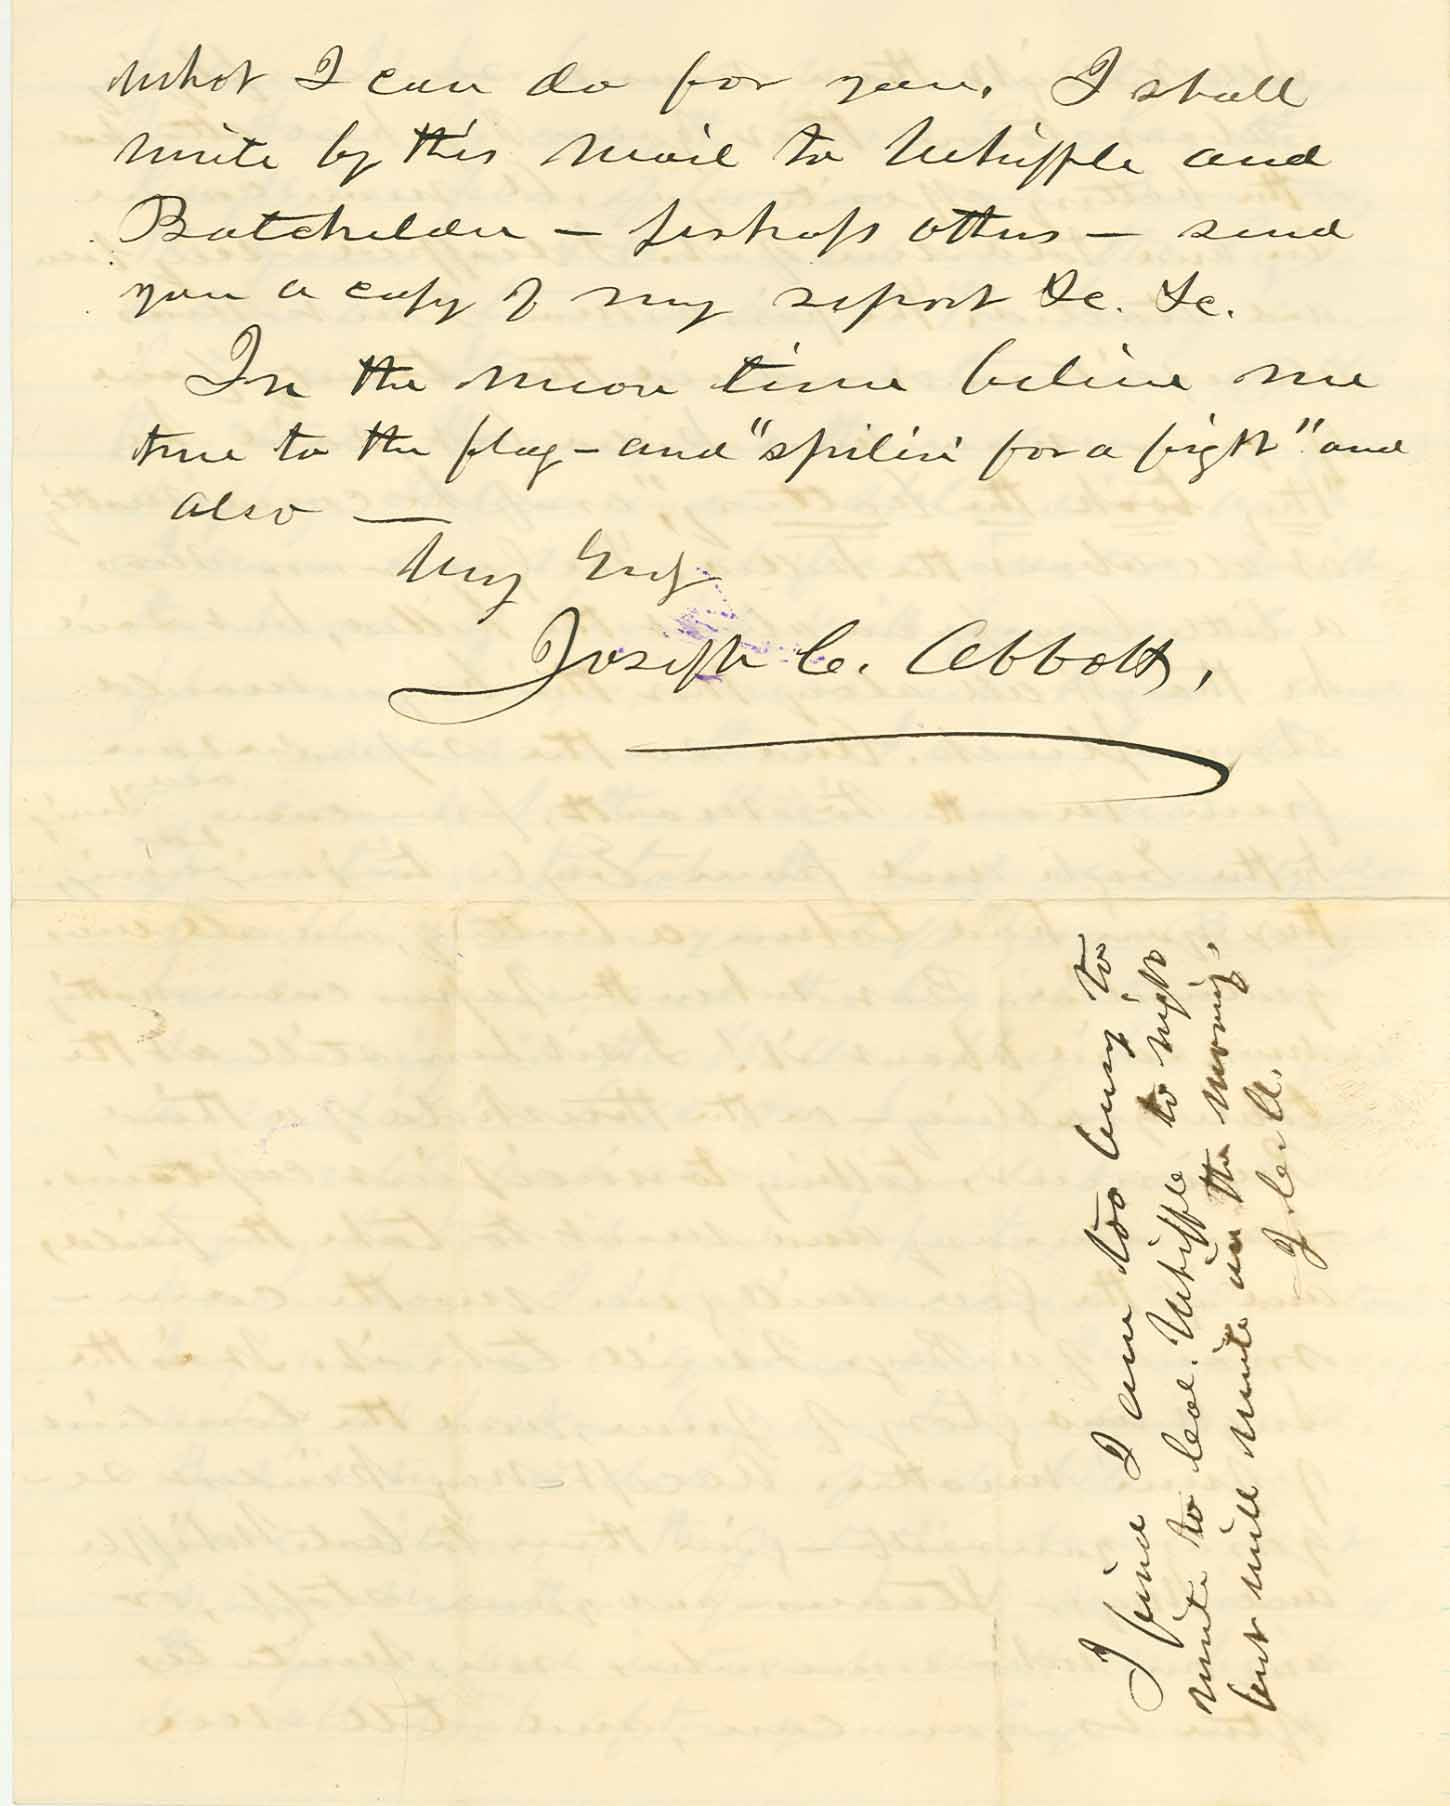 what I can do for you. I shall
write by this mail to Whipple and
Batchelder — perhaps others — send
you a copy of my report &c. &c.
In the mean time believe me
true to the flag — and "spilin' for a fight" and
also —
Very Truly
Joseph C. Abbott,
I find I am too busy to
write to Col. Whipple to night
but will write in the morning.
J.C.A.